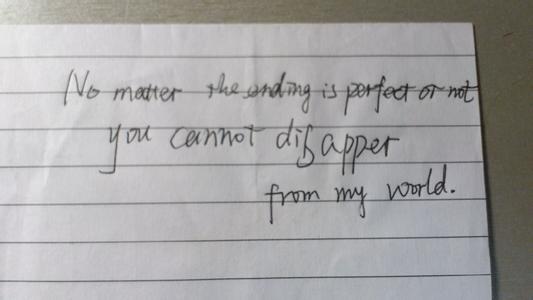 No matter the ending is perfect or not
you cannot disapper
from my world.